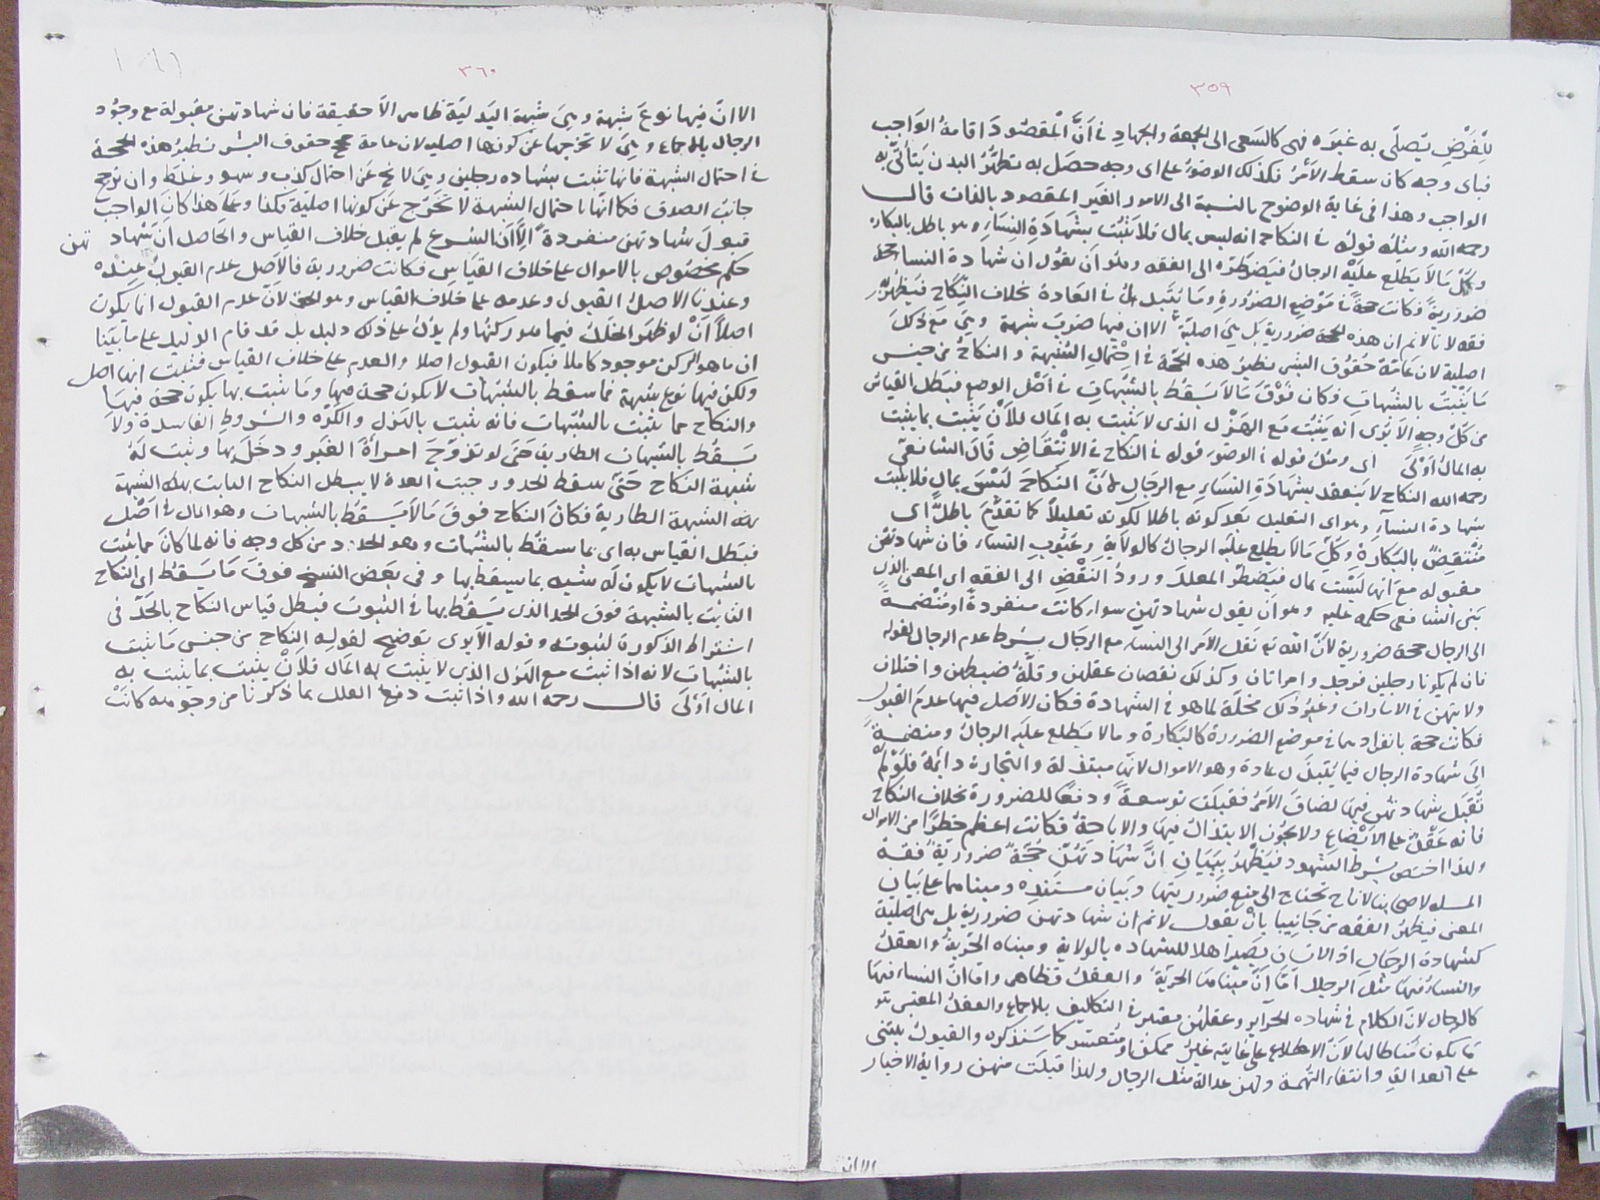 ٣٥٩
للفرض يتصلى به غيره فهى كالسعى الى الجمعة والجهاد فى ان المقصود اقامة الواجب
فباى وجه كان سقط الأمر فكذلك الوضوء على اى وجه حصل به تطهر البدن يتأتى به
الواجب وهذا فى غاية الوضوح بالنسبة الى الامور الغير المقصود بالذات قال
رحمه الله ومثله قوله فى النكاح انه ليس بمال فلا يثبت بشهادة النساء وهو باطل بالبكارة
وكل ما لا يطلع عليه الرجال فيضطره الى الفقه وهو ان يقول ان شهادة النساء حجة
ضرورية فكانت حجة فى موضع الضرورة وما يبتذل فى العادة بخلاف النكاح فيظهر به
فقه لانا لا نم ان هذه الحجة ضرورية بل هى اصلية الا ان فيها ضرب شبهة وهى مع ذلك
اصلية لان عامة حقوق البشر نظير هذه الحجة فى احتمال الشبهة و النكاح من جنس
ما يثبت بالشبهات فكان فوق ما لا يسقط بالشبهات فى اصل الوضع فبطل القياس
من كل وجه الا ترى انه يثبت مع الهزل الذى لا يثبت به المال فلأن يثبت بما يثبت
به المال اولى اى ومثل قوله فى الوضوء قوله فى النكاح فى الانتقاض قال الشافعى
رحمه الله النكاح لا ينعقد بشهادة النساء مع الرجال لأن النكاح ليس بمال فلا يثبت
بشهادة النساء وهو اى التعليل بعد كونه باطلا لكونه تعليلا كما تقدم باطل اى
منتقض بالبكارة وكل ما لا يطلع عليه الرجال كالولادة وعيوب النساء فان شهادتهن
مقبوله مع انها ليست بمال فيضطر المعلل ورود النقض الى الفقه اى المعنى الذى
بنى الشافعى حكمه عليه وهو ان يقول شهادتهن سواء كانت منفردة او منضمة
الى الرجال حجة ضرورية لأن الله تع نقل الأمر الى النساء مع الرجال بشرط عدم الرجال لقوله
فان لم يكونا رجلين فرجل وامراتان وكذلك نقصان عقلهن وقلة ضبطهن واختلال
ولايتهن فى الامارات وغير ذلك مخلة لما هو فى الشهادة فكان الاصل فيها عدم القبول
فكانت حجة بانفرادها فى موضع الضرورة كالبكارة وما لا يطلع عليه الرجال ومنضمة
الى شهادة الرجال فيما يبتذل عادة وهو الاموال لانها مبتذلة والتجارة دائمة فلو لم
تقبل شهادتهن فيها لضاق الأمر فقبلت توسعة ودفعا للضرورة بخلاف النكاح
فانه عقد على الأبضاع ولا يجوز الابتذال فيها والاباحة فكانت اعظم خطرا من الاموال
ولهذا اختص بشرط الشهود فيظهر ببيان ان شهادتهن حجة ضرورية فقه
المسله لاصحابنا لانا نحتاج الى منع ضروريتها وبيان مستنده ومبناها على بيان
المعنى فيظهر الفقه من جانبيا بان نقول لا نم ان شهادتهن ضرورية بل هى اصلية
كشهادة الرجال اذ الانسان يصير اهلا للشهاده بالولاية ومبناه الحرية والعقل
والنساء فيها مثل الرجال اما ان مبناها الحرية والعقل فظاهر واما ان النساء فيها
كالرجال لان الكلام فى شهاده الحراير وعقلهن معتبر فى التكاليف بالاجماع والعقل المعتبر هو
ما يكون مناطا لها لأن الاطلاع على غايته غير ممكن او متعسر كما سنذكره والقبول يبتنى
على العدالة وانتفاء التهمة ولهن عدالة مثل الرجال ولهذا قبلت منهن رواية الاخبار
الا ان
٣٦٠
الا ان فيها نوع شبهة وهى شبهة البدلية ظاهرا لا حقيقة فان شهادتهن مقبولة مع وجود
الرجال بالاجماع وهى لا تخرجها عن كونها اصليه لان عامة حجج حقوق البشر نظير هذه الحجة
فى احتمال الشبهة فانها تثبت بشهاده رجلين وهى لا تخ عن احتمال كذب وسهو وغلط وان ترجح
جانب الصدق فكما انها باحتمال الشبهة لا تخرج عن كونها اصلية فكذا وعلى هذا كان الواجب
قبول شهادتهن منفردة الا ان الشرع لم يقبل خلاف القياس والحاصل ان شهادتهن
حكم مخصوص بالاموال على خلاف القياس فكانت ضرورية فالاصل عدم القبول عنده
وعندنا الاصل القبول وعدمه على خلاف القياس وهو الحق لان عدم القبول انما يكون
اصلا ان لو ظهر الخلل فيما هو ركنها ولم يدل على ذلك دليل بل قد قام الدليل على ما بينا
ان ما هو الركن موجود كاملا فيكون القبول اصلا والعدم على خلاف القياس فثبت انها اصل
ولكن فيها نوع شبهة فما سقط بالشبهات لا يكون حجة فيها وما يثبت بها يكون حجة فيها
والنكاح مما يثبت بالشبهات فانه يثبت بالهزل والكره والشروط الفاسدة ولا
يسقط بالشبهات الطارية حتى لو تزوج امرأة الغير ودخل بها وثبت له
شبهة النكاح حتى سقط الحد ووجبت العدة لا يبطل النكاح الثابت بهذه الشبهة
بهذه الشبهة الطارية فكان النكاح فوق ما لا يسقط بالشبهات وهو المال فى اصل
فبطل القياس به اى بما يسقط بالشبهات وهو الحدود من كل وجه فانه لما كان مما يثبت
بالشبهات لا يكون له شبه بما يسقط بها وفى بعض النسخ فوق ما يسقط اى النكاح
الثابت بالشبهة فوق الحد الذى يسقط بها فى الثبوت فبطل قياس النكاح بالحد فى
اشتراط الذكورة لثبوته وقوله الا يرى توضيح لقوله النكاح من جنس ما يثبت
بالشبهات لانه اذا ثبت مع الهزل الذى لا يثبت به المال فلأن يثبت بما يثبت به
المال اولى قال رحمه الله واذا ثبت دفع العلل بما ذكرنا من وجوهه كانت